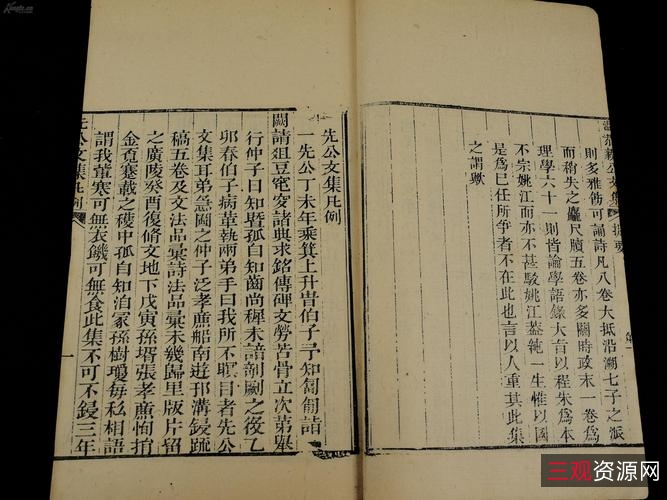 則多雅飭可誦詩凡八卷大抵沿溯七子之派
而稍失之麤尺牘五卷亦多關時政末一卷為
理學六十一則皆論學語錄大旨以程朱為本
不宗姚江而亦不甚駁姚江蓋純一生惟以國
是為已任所爭者不在此也言以人重其此集
之謂歟
先公文集凡例
一先公丁未年乘箕上升眥伯子予知匍匐詣
闕請俎豆窀穸諸典求銘傳碑文勞苦骨立次第舉
行仲子日知暨孤自知齒尚穉未諳剞劂之役乙
卯春伯子病革執兩弟手曰我所不瞑目者先公
文集耳弟急圖之仲子泛孝廉船南遊邗溝鋟疏
稿五卷及文法品彚詩法品彚未幾歸里版片留
之廣陵癸酉復脩文地下戊寅孫壻張孝廉恂捐
金覔蹇載之穫中孤自知泊冢孫樹瓊每私相語
謂我輩寒可無衣饑可無食此集不可不鋟三年
先公文集凡例
一
三观资源网